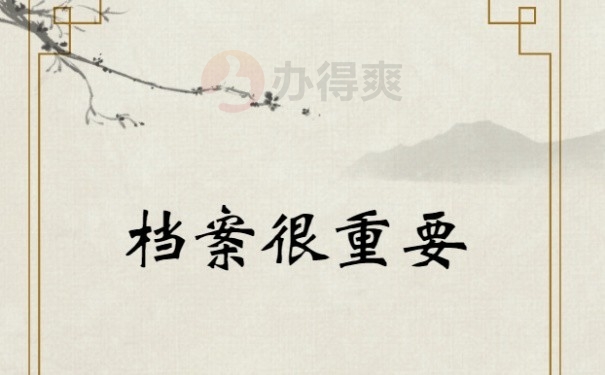 办得爽
档案很重要